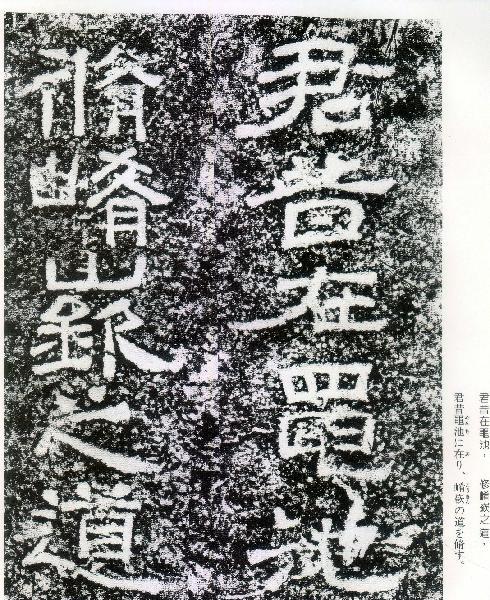 君昔在黽池，脩崤嶔之道，
君昔黽池に在り、崤嶔の道を脩す。
君昔在黽池
脩崤嶔之道